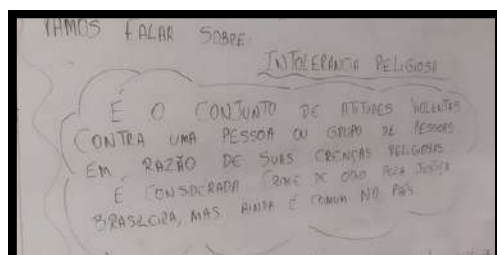 VAMOS FALAR SOBRE:
INTOLERANCIA RELIGIOSA
É O CONJUNTO DE ATITUDES VIOLENTAS
CONTRA UMA PESSOA OU GRUPO DE PESSOAS
EM RAZÃO DE SUAS CRENÇAS RELIGIOSAS
É CONSIDERADA CRIME DE ODIO PELA JUSTIÇA
BRASILEIRA, MAS AINDA É COMUM NO PAÍS